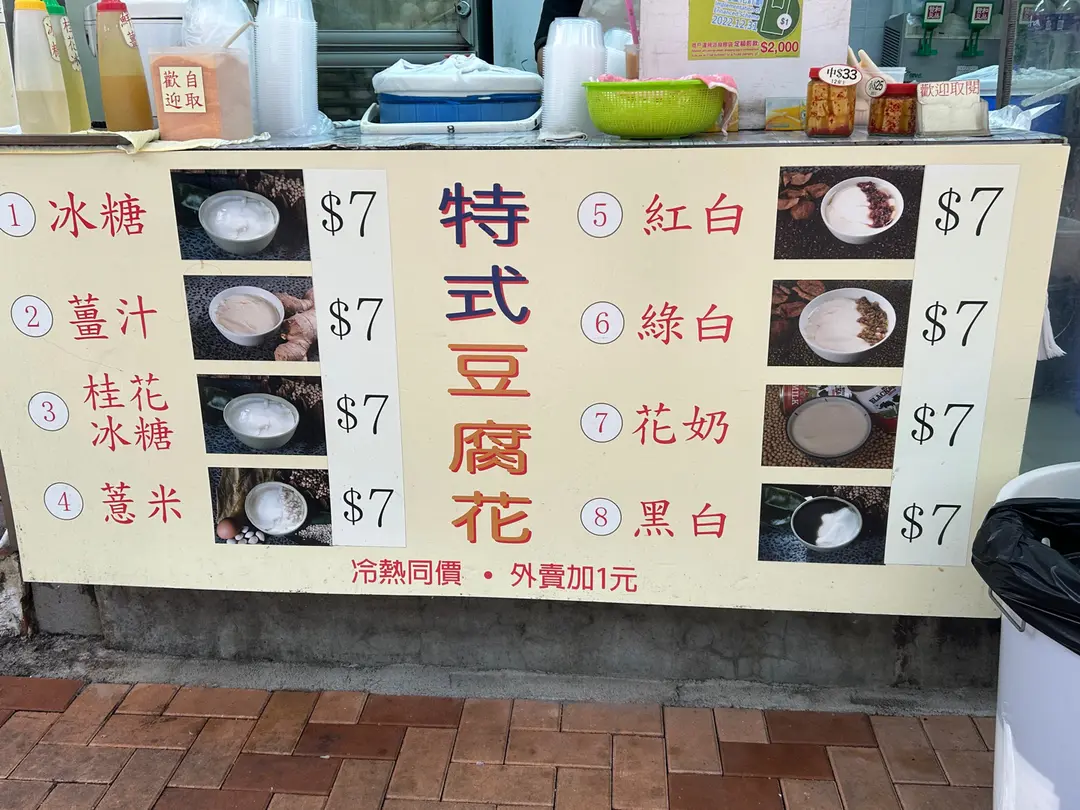 歡自
迎取
$1
$2,000
中$33
$25
歡迎取閱
特式豆腐花
1 冰糖 $7
2 薑汁 $7
3 桂花
冰糖 $7
4 薏米 $7
5 紅白 $7
6 綠白 $7
7 花奶 $7
8 黑白 $7
冷熱同價 • 外賣加1元